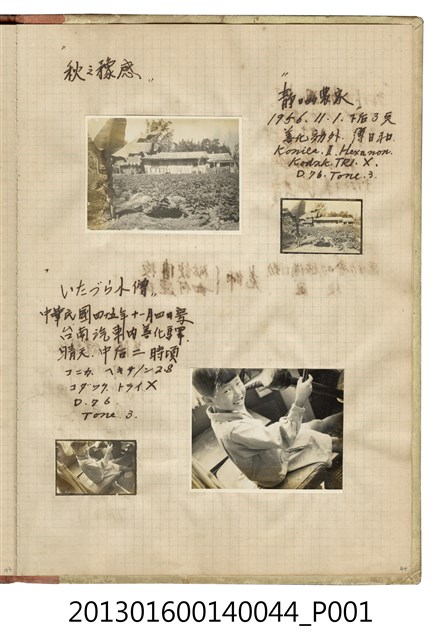 秋之稼感
静かな農家
1956.11.1.午后3点
善化郊外. 薄日和
Konica. Ⅱ. Hexanon.
Kodak. TRI. X.
D.76. Tone.3.
いたづら小僧
中華民国四五年十一月四日
台南汽車内善化駅
晴天. 中后二時頃
コニカ. ヘキサノン 2.8
コダック. トライX
D.76
Tone.3.
201301600140044_P001